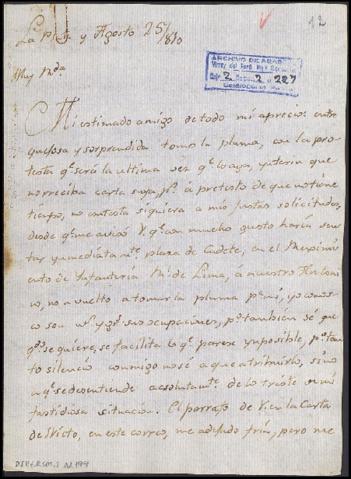 12
La Paz y Agosto 25/810
ARCHIVO DE ABAS
Virrey del Perú
Caja 2 2 227
Muy Sra.
Mi estimado amigo de todo mi aprecio: entre
quejosa y sorprendida tomo la pluma, con la pro-
testa qe. será la ultima vez qe. lo haga, y sterin que
no reciba carta suya pr. á pretesto de que no tiene
tiempo, no contesta siquiera a mis justas solicitudes,
desde qe. me avisó V. qe. con mucho gusto haria sen-
tar ynmediatamte. plaza de Cadete, en el Reximi-
ento de Infanteria Rl. de Lima, a nuestro Antoni-
to, no a vuelto a tomar la pluma pa. mi, yo conos-
co son ms. y gs. sus ocupaciones, pa. también sé que
qdo. se quiere, se facilita lo qe. parese ymposible, pr. tan-
to silencio conmigo no sé a que atribuirlo, sino
a qe. se desentiende absolutamte. de lo triste de mi
fastidiosa situación. El parrafo de V. en la Carta
de Victo, en este correo, me a dejado fria, pero me
DIVERSOS.2 A2 199